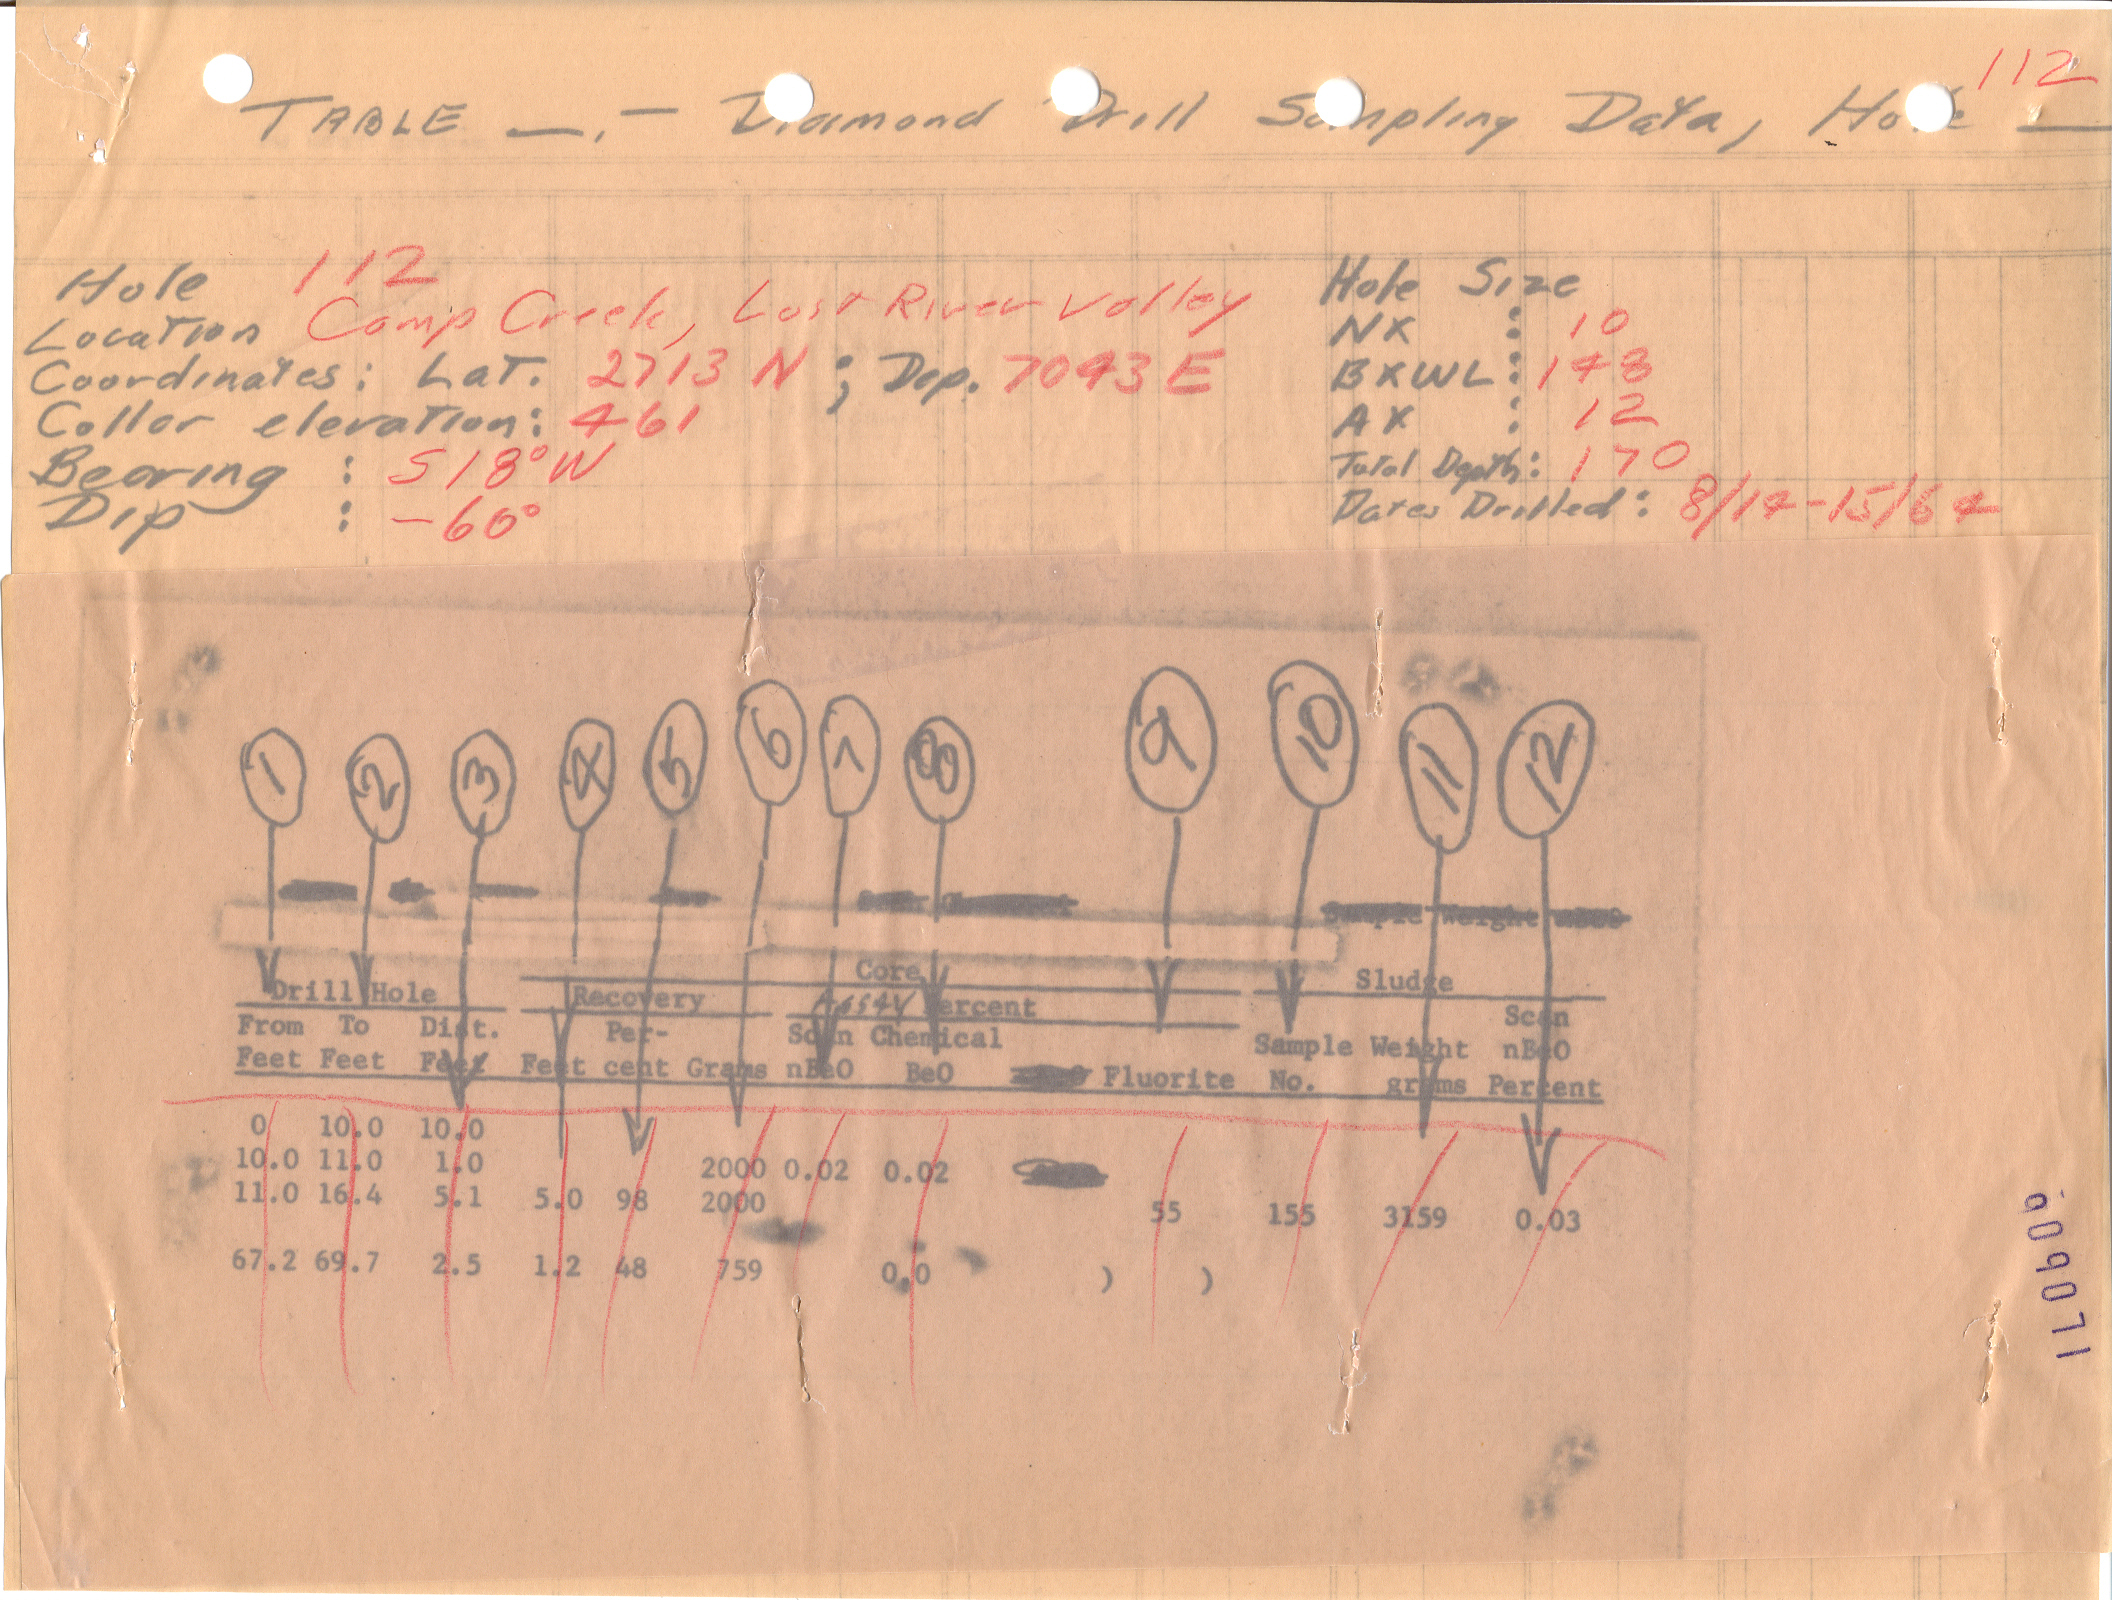 112
TABLE __.— Diamond Drill Sampling Data, Hole __
Hole 112
Location Camp Creek, Lost River Valley
Coordinates: Lat. 2713 N ; Dep. 7043 E
Collar elevation: 461
Bearing : S18°W
Dip : -60°
Hole Size
NX : 10
BXWL: 148
AX : 12
Total Depth: 170
Dates Drilled: 8/14-15/64
1 2 3 4 5 6 7 8 9 10 11 12
Sample Weight nBeO
Core
Drill Hole Recovery Assay Percent Sludge
From To Dist. Per- Scan Chemical Scan
Feet Feet Feet Feet cent Grams nBeO BeO Fluorite Sample No. Weight grams nBeO Percent
0 10.0 10.0
10.0 11.0 1.0 2000 0.02 0.02
11.0 16.4 5.1 5.0 98 2000 55 155 3159 0.03
67.2 69.7 2.5 1.2 48 759 0.0 ) )